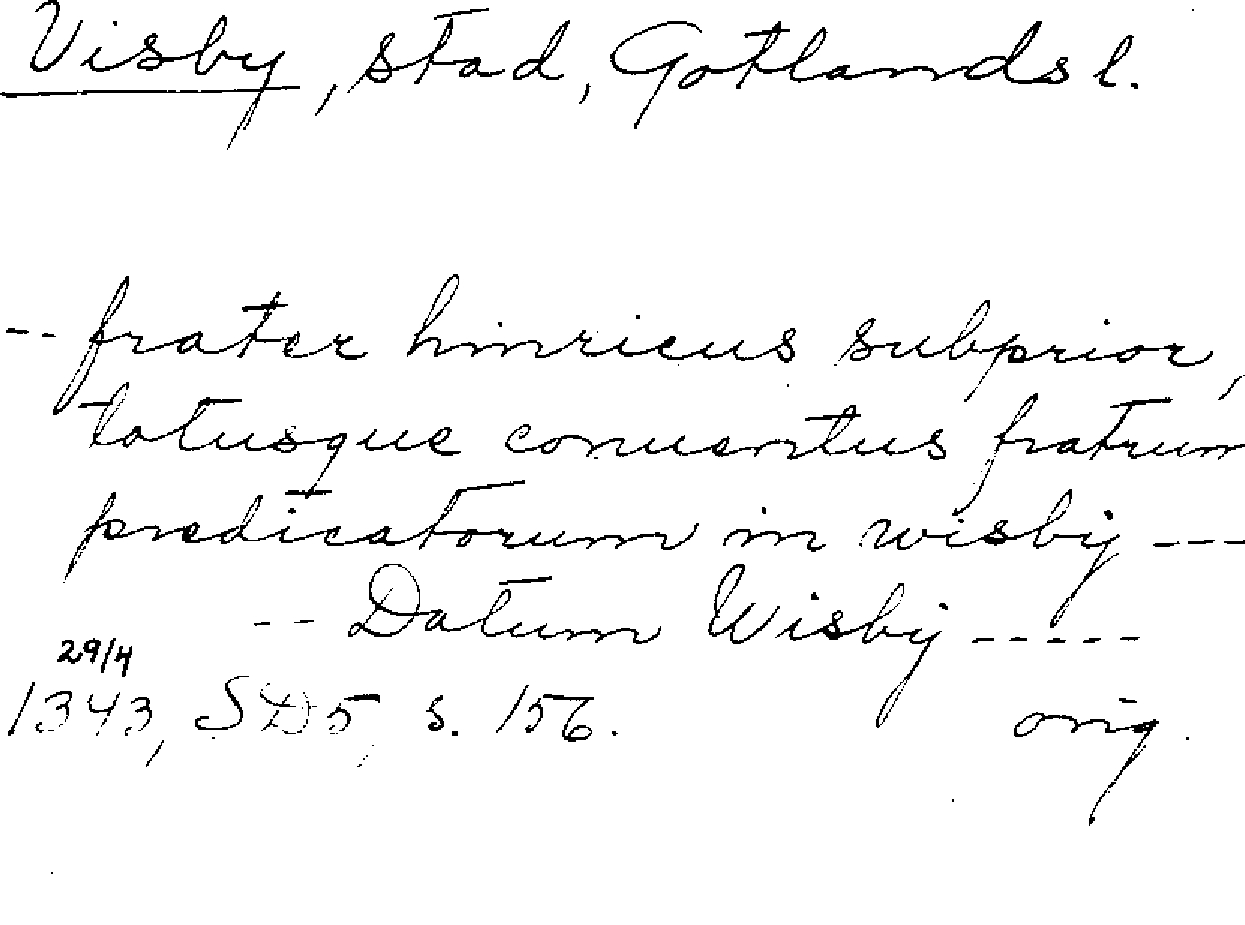 Visby, stad, Gotlands l.
-- frater hinricus subprior,
totusque conuentus fratrum
predicatorum in wisby ---
-- Datum Wisby -----
29/4
1343, SD5, s. 156. orig.